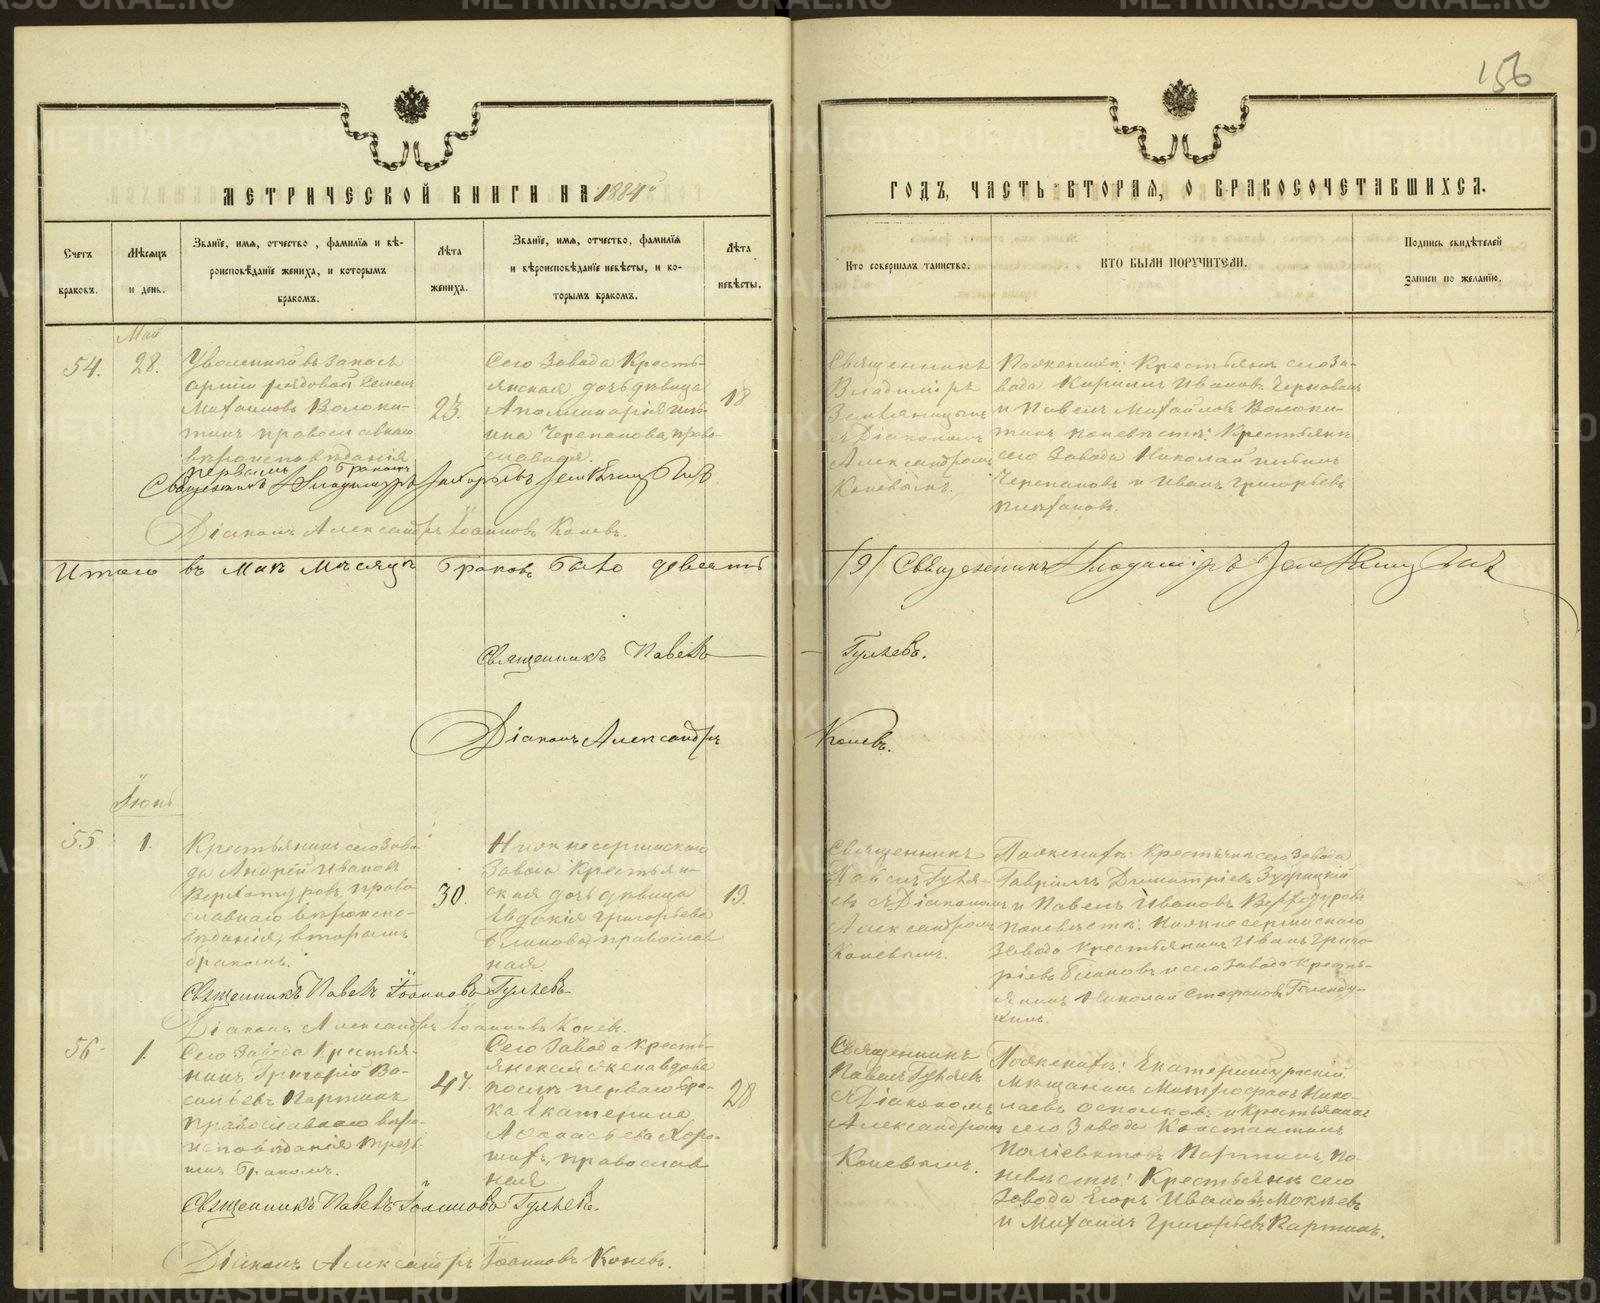 156
МЕТРИЧЕСКОЙ КНИГИ НА 1884й
ГОДЪ, ЧАСТЬ ВТОРАЯ, О БРАКОСОЧЕТАВШИХСЯ.
Счетъ браковъ.
Мѣсяцъ и день.
Званіе, имя, отчество, фамилія и вѣ-
роисповѣданіе жениха, и которымъ
бракомъ.
Лѣта
жениха.
Званіе, имя, отчество, фамилія
и вѣроисповѣданіе невѣсты, и ко-
торымъ бракомъ.
Лѣта
невѣсты.
Кто совершалъ таинство.
КТО БЫЛИ ПОРУЧИТЕЛИ.
Подпись свидѣтелей
записи по желанію.
Май
54.
28.
Уволенный въ запасъ
арміи рядовой Семенъ
Михаиловъ Волоки-
тинъ православнаго
вѣроисповѣданія
первымъ бракомъ
23.
Сего Завода Кресть-
янская дочь дѣвица
Аполлинарія
Черепанова, право-
славная.
18
Священникъ
Владиміръ
Земляницынъ
съ Діакономъ
Александромъ
Коневымъ.
По женихѣ: Крестьяне сего За-
вода Кирилъ Ивановъ
и Павелъ Михайловъ Волоки-
тинъ по невѣстѣ: Крестьяне
сего Завода Николай
Черепановъ и Иванъ Григорьевъ
Священникъ Владиміръ Земляницынъ
Діаконъ Александръ Іоанновъ Коневъ.
Итого въ Маѣ мѣсяцѣ браковъ было девять /9/ Священникъ Владиміръ Земляницынъ
Священникъ Павелъ Гуляевъ.
Діаконъ Александръ Коневъ.
Іюнь
55.
1.
Крестьянинъ сего Заво-
да Андрей Ивановъ
Верхотуровъ, право-
славнаго вѣроиспо-
вѣданія, вторымъ
бракомъ.
30.
Нижнесергинскаго
Завода Крестьян-
ская дочь дѣвица
Евдокія Григорьева
Блинова православ
ная.
19.
Священникъ
Павелъ Гуля-
евъ съ Діакономъ
Александромъ
Коневымъ.
По женихѣ: Крестьяне сего Завода
Гавриилъ Димитріевъ
и Павелъ Ивановъ Верхотуровъ
по невѣстѣ: Нижнесергинскаго
Завода Крестьянинъ Иванъ Григо-
ріевъ Блиновъ и сего Завода Кресть-
янинъ Николай Стефановъ
Священникъ Павелъ Іоанновъ Гуляевъ
Діаконъ Александръ Іоанновъ Коневъ.
56
1.
Сего Завода Крестья-
нинъ Григорій Ва-
сильевъ Картинъ
православнаго вѣро-
исповѣданія треть-
имъ бракомъ.
47.
Сего Завода кресть-
янская жена вдова
послѣ перваго бра-
ка Екатерина
Аѳанасьева
православ
ная
28
Священникъ
Павелъ Гуляевъ
съ Діакономъ
Александромъ
Коневымъ.
По женихѣ: Екатеринбургскій
мѣщанинъ Митрофанъ Нико-
лаевъ Осколковъ и Крестьянинъ
сего Завода Константинъ
Поліевктовъ Картинъ, по
невѣстѣ: Крестьяне сего
Завода Егоръ Ивановъ Мокѣевъ
и Михаилъ Григорьевъ Картинъ.
Священникъ Павелъ Іоанновъ Гуляевъ.
Діаконъ Александръ Іоанновъ Коневъ.
METRIKI.GASO-URAL.RU